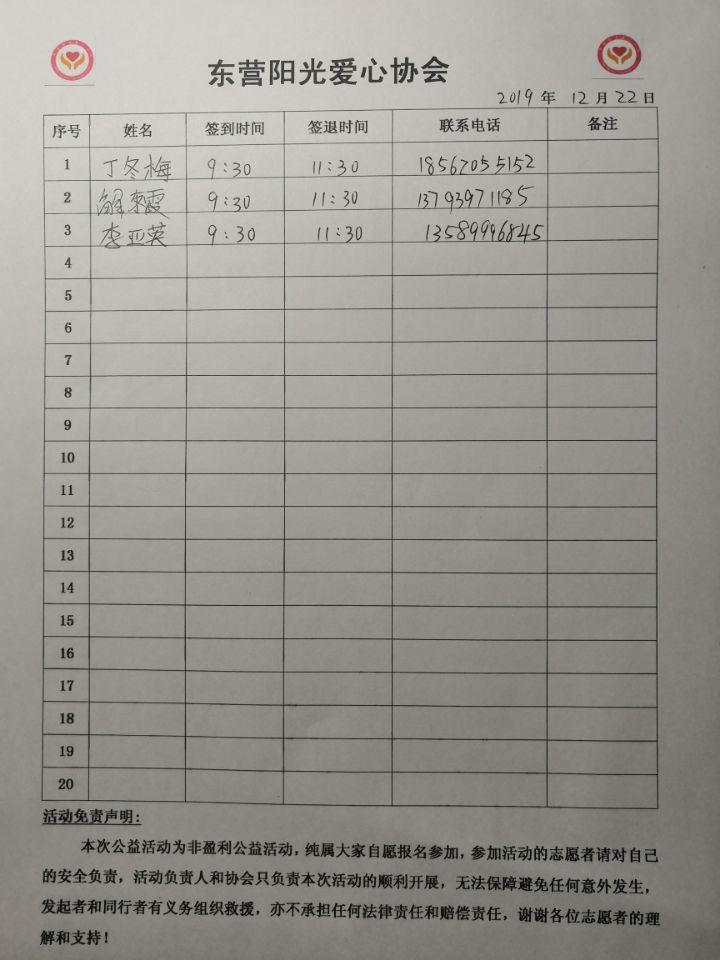 东营阳光爱心协会
2019 年 12 月 22 日
序号 姓名 签到时间 签退时间 联系电话 备注
1 丁冬梅 9:30 11:30 18562055152
2 解来霞 9:30 11:30 13793971185
3 李亚英 9:30 11:30 13589996845
4
5
6
7
8
9
10
11
12
13
14
15
16
17
18
19
20
活动免责声明:
本次公益活动为非盈利公益活动，纯属大家自愿报名参加，参加活动的志愿者请对自己
的安全负责，活动负责人和协会只负责本次活动的顺利开展，无法保障避免任何意外发生，
发起者和同行者有义务组织救援，亦不承担任何法律责任和赔偿责任，谢谢各位志愿者的理
解和支持！